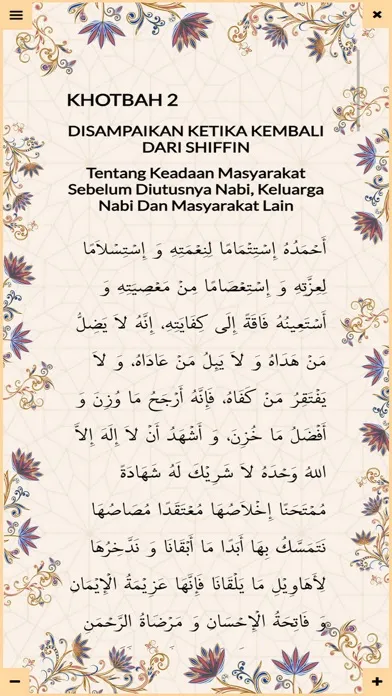 KHOTBAH 2
DISAMPAIKAN KETIKA KEMBALI
DARI SHIFFIN
Tentang Keadaan Masyarakat
Sebelum Diutusnya Nabi, Keluarga
Nabi Dan Masyarakat Lain
أَحْمَدُهُ إِسْتِتْمَامًا لِنِعْمَتِهِ وَ إِسْتِسْلَامًا
لِعِزَّتِهِ وَ إِسْتِعْصَامًا مِنْ مَعْصِيَتِهِ وَ
أَسْتَعِينُهُ فَاقَةً إِلَى كِفَايَتِهِ، إِنَّهُ لاَ يَضِلُّ
مَنْ هَدَاهُ وَ لاَ يَىِلُ مَنْ عَادَاهُ، وَ لاَ
يَفْتَقِرُ مَنْ كَفَاهُ، فَإِنَّهُ أَرْجَحُ مَا وُزِنَ وَ
أَفْضَلُ مَا خُزِنَ، وَ أَشْهَدُ أَنْ لاَ إِلَهَ إِلاَّ
اللهُ وَحْدَهُ لاَ شَرِيْكَ لَهُ شَهَادَةً
مُمْتَحَنًا إِخْلاَصُهَا مُعْتَقَدًا مُصَاصُهَا
نَتَمَسَّكُ بِهَا أَبَدًا مَا أَبْقَانَا وَ نَدَّخِرُهَا
لِأَهَاوِيْلِ مَا يَلْقَانَا فَإِنَّهَا عَزِيْمَةُ الْإِيْمَانِ
وَ فَاتِحَةُ الْإِحْسَانِ وَ مَرْضَاةُ الرَّحْمَنِ